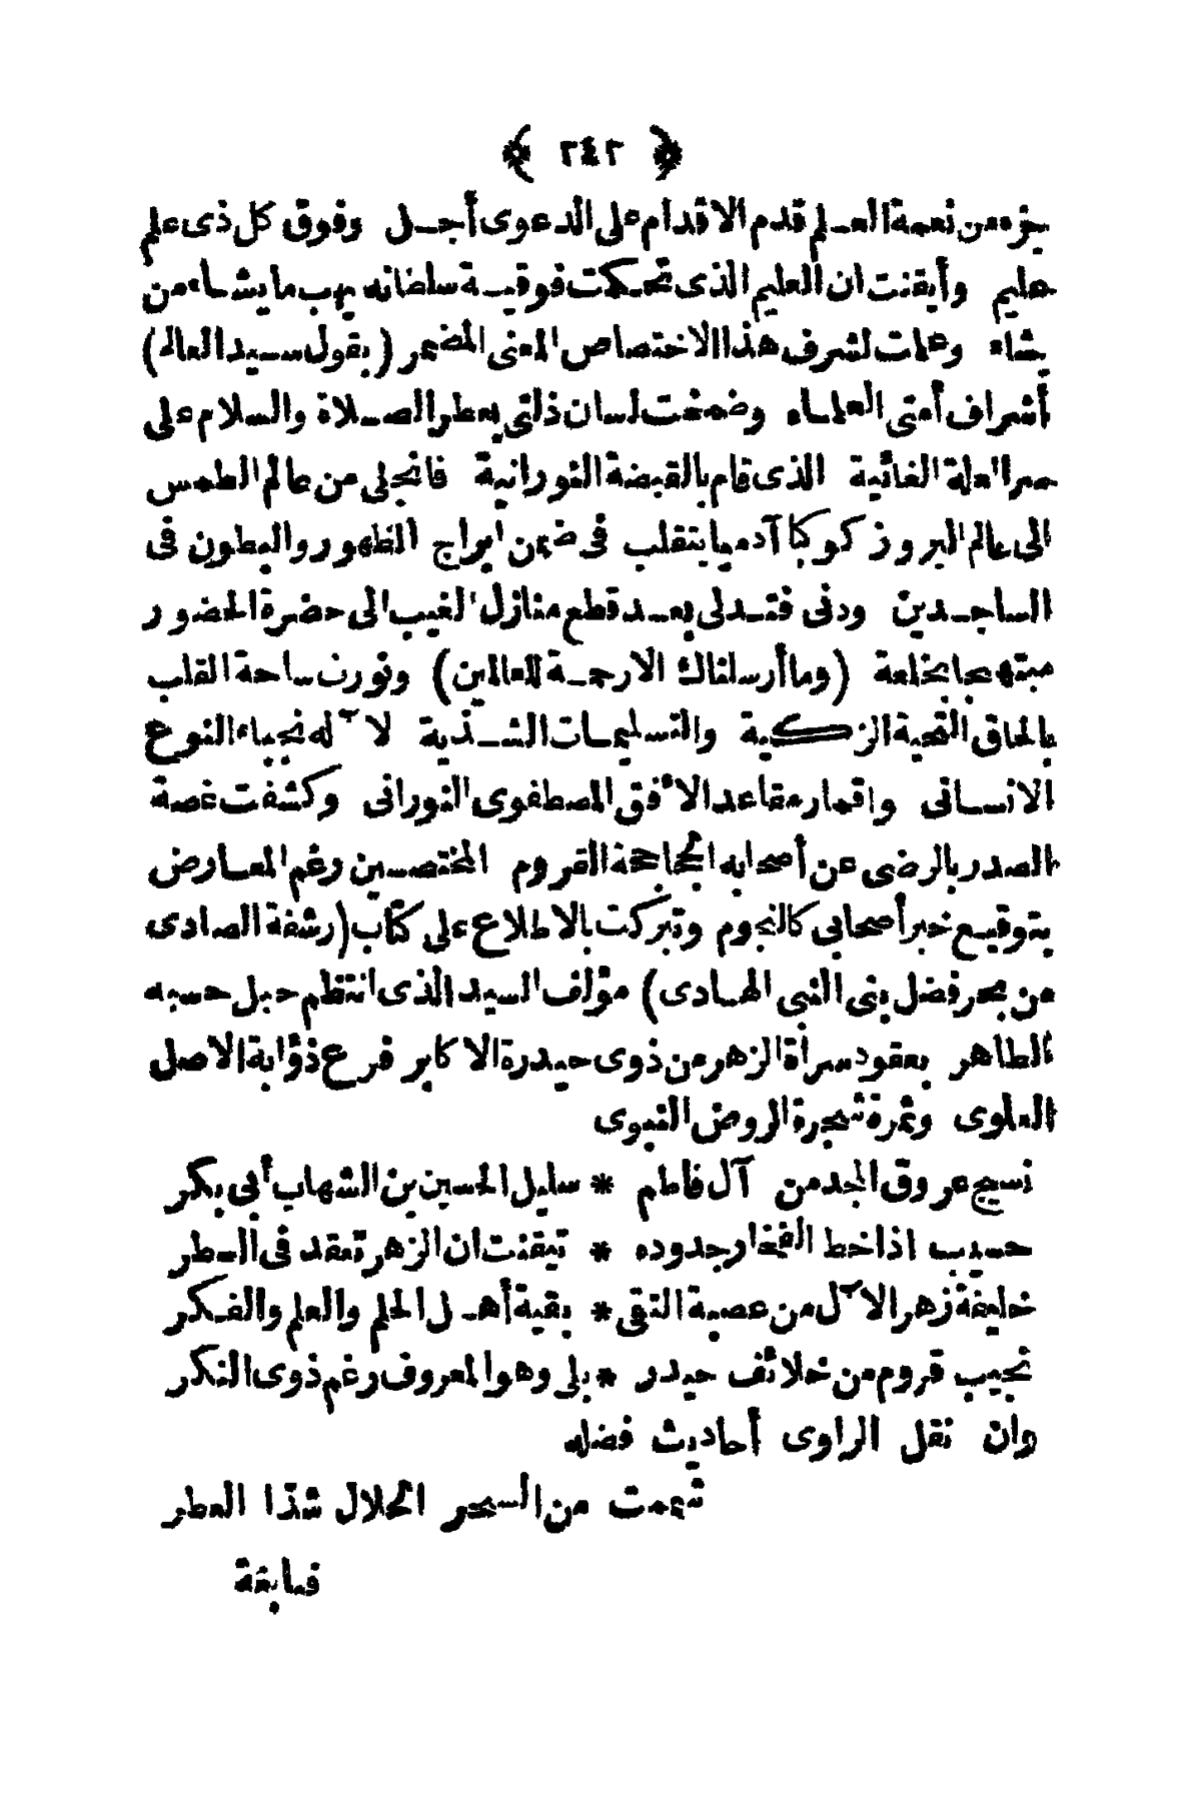 ﴿ ٢٤٢ ﴾
جزء من نعمة العلم قدم الاقدام على الدعوى أجل وفوق كل ذى علم
عليم وأيقنت ان العليم الذى تحكمت فوقية سلطانه يهب ما يشاء من
يشاء وعلمت لشرف هذا الاختصاص المعنى المضمر (بقول سيد العالم)
أشراف أمتى العلماء وضمخت لسان ذاتى بعطر الصلاة والسلام على
سر العلة الغائية الذى قام بالقبضة النورانية فانجلى من عالم الطمس
الى عالم البروز كوكبا آدميا يتقلب فى ضمن ابراج الظهور والبطون فى
الساجدين ودنى فتدلى بعد قطع منازل الغيب الى حضرة الحضور
مبتهجا بخلعة (وما أرسلناك الا رحمة للعالمين) ونورت ساحة القلب
بالحاق التحية الزكية والتسليمات الشذية لا ٓله نجباء النوع
الانسانى واقمار مقاعد الأفق المصطفوى النورانى وكشفت غصة
الصدر بالرضى عن أصحابه الجحاجحة القروم المختصين رغم المعارض
بتوقيع خبر أصحابى كالنجوم وتبركت بالاطلاع على كتاب (رشفة الصادى
من بحر فضل بنى النبى الهادى) مؤلف السيد الذى انتظم حبل حسبه
الطاهر بعقود سرأة الزهر من ذوى حيدرة الاكابر فرع ذؤابة الاصل
العلوى وثمرة شجرة الروض النبوى
نسيج عروق المجد من آل فاطم * سليل الحسين بن الشهاب أبى بكر
حسيب اذا خط الفخار جدوده * تيقنت ان الزهر تعقد فى السطر
خليفة زهر الا ٓل من عصبة التقى * بقية أهل الحلم والعلم والفكر
نجيب قروم من خلائف حيدر * بلى وهو المعروف رغم ذوى النكر
وان نقل الراوى أحاديث فضله
شممت من السحر الحلال شذا العطر
فسابقة